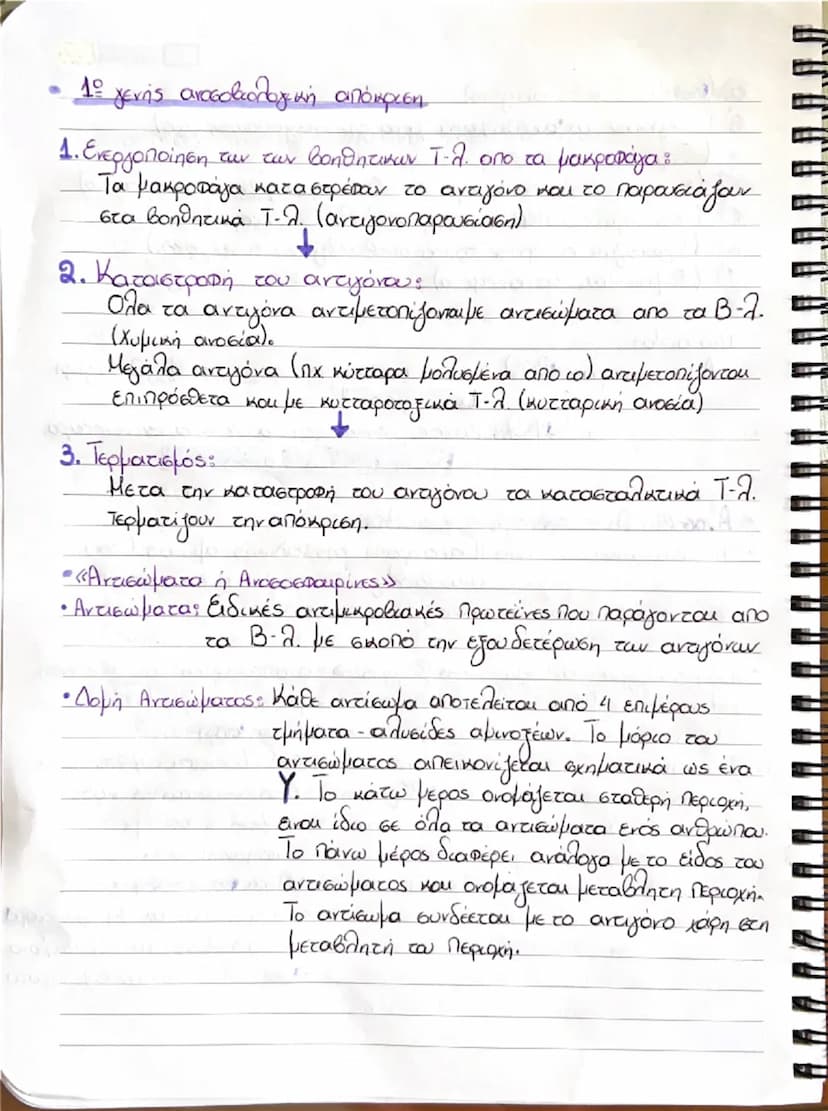 • 1ο γενής ανοσοβιολογική απόκριση
1. Ενεργοποίηση των των βοηθητικών Τ-λ. απο τα μακροφάγα:
Τα μακροφάγα καταστρέφουν το αντιγόνο και το παρουσιάζουν
στα βοηθητικά Τ-λ. (αντιγονοπαρουσίαση)
↓
2. Καταστροφή του αντιγόνου:
Όλα τα αντιγόνα αντιμετοπίζονται με αντισώματα απο τα Β-λ.
(Χυμική ανοσία).
Μεγάλα αντιγόνα (πχ κύτταρα μολυσμένα από ιο) αντιμετοπίζονται
επιπρόσθετα και με κυτταροτοξικά Τ-λ. (κυτταρική ανοσία)
↓
3. Τερματισμός:
Μετα την καταστροφή του αντιγόνου τα κατασταλτικά Τ-λ.
τερματίζουν την απόκριση.
• «Αντισώματα ή Ανοσοσφαιρίνες»
• Αντισώματα: Ειδικές αντιμικροβιακές πρωτεΐνες που παράγονται απο
τα Β-λ. με σκοπό την εξουδετέρωση των αντιγόνων
• Δομή Αντισώματος: Κάθε αντίσωμα αποτελείται από 4 επιμέρους
τμήματα - αλυσίδες αμινοξέων. Το μόριο του
αντισώματος απεικονίζεται σχηματικά ως ένα
Υ. Το κάτω μερος ονομάζεται σταθερή περιοχή,
ειναι ίδιο σε όλα τα αντισώματα ενός ανθρώπου.
Το πάνω μέρος διαφέρει ανάλογα με το είδος του
αντισώματος και ονομάζεται μεταβλητη περιοχή.
Το αντίσωμα συνδέεται με το αντιγόνο χάρη στη
μεταβλητή του περιοχή.